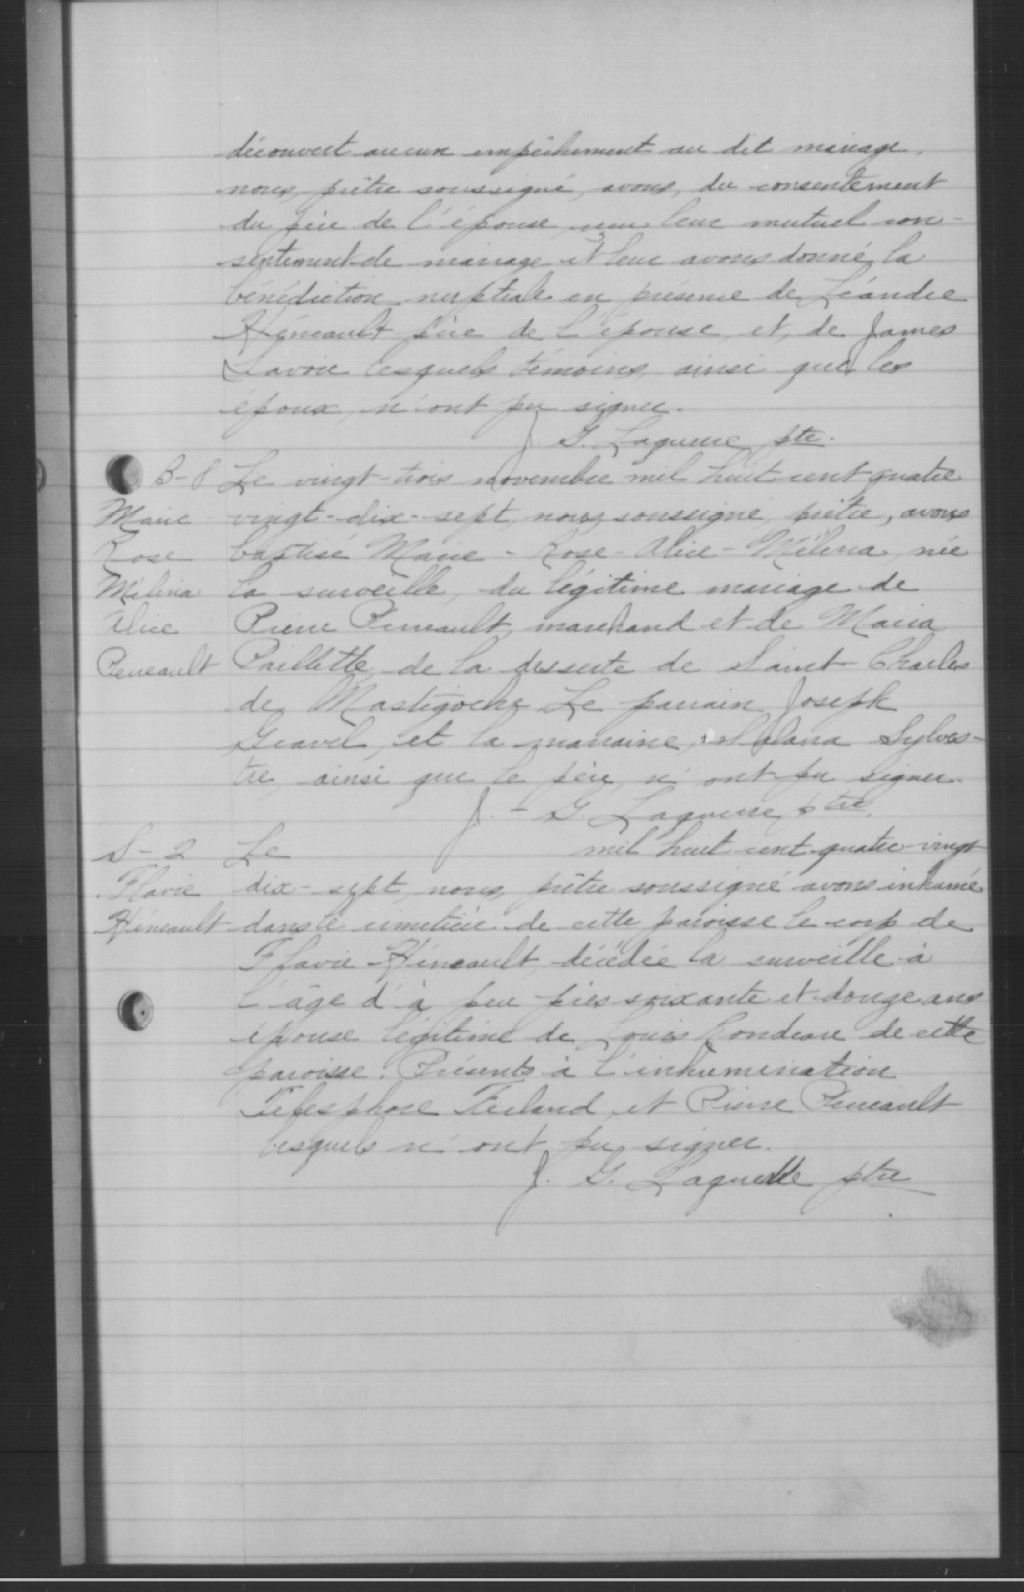 découvert aucun empêchement au dit mariage,
nous, prêtre soussigné, avons, du consentement
du père de l'épouse, reçu leur mutuel con-
sentement de mariage et leur avons donné la
bénédiction nuptiale en présence de Léandre
Héneault père de l'épouse, et, de James
Lavoie lesquels témoins, ainsi que les
époux, n'ont pu signer.
J. G. Laquerre ptr.
B-8 Le vingt-trois novembre mil huit cent quatre
Marie vingt-dix-sept, nous, soussigné prêtre, avons
Rose baptisé Marie-Rose-Alice-Mélina, née
Mélina la surveille, du légitime mariage de
Alice Pierre Peneault, marchand et de Maria
Peneault Paillette, de la desserte de Saint Charles
de Mastigoche. Le parrain Joseph
Gravel, et la marraine, Sylves-
tre, ainsi que le père, n'ont pu signer.
J.-G. Laquerre, ptre.
S-2 Le mil huit cent quatre-vingt
Flavie dix-sept, nous, prêtre soussigné avons inhumé
Héneault dans le cimetière de cette paroisse le corp de
Flavie Héneault, décédée la surveille à
l'âge d'à peu près soixante et douze ans
épouse légitime de Louis Rondeau de cette
paroisse. Présents à l'inhumination
Télesphore Ferland et Pierre Peneault
lesquels n'ont pu signer.
J. G. Laquerre ptre